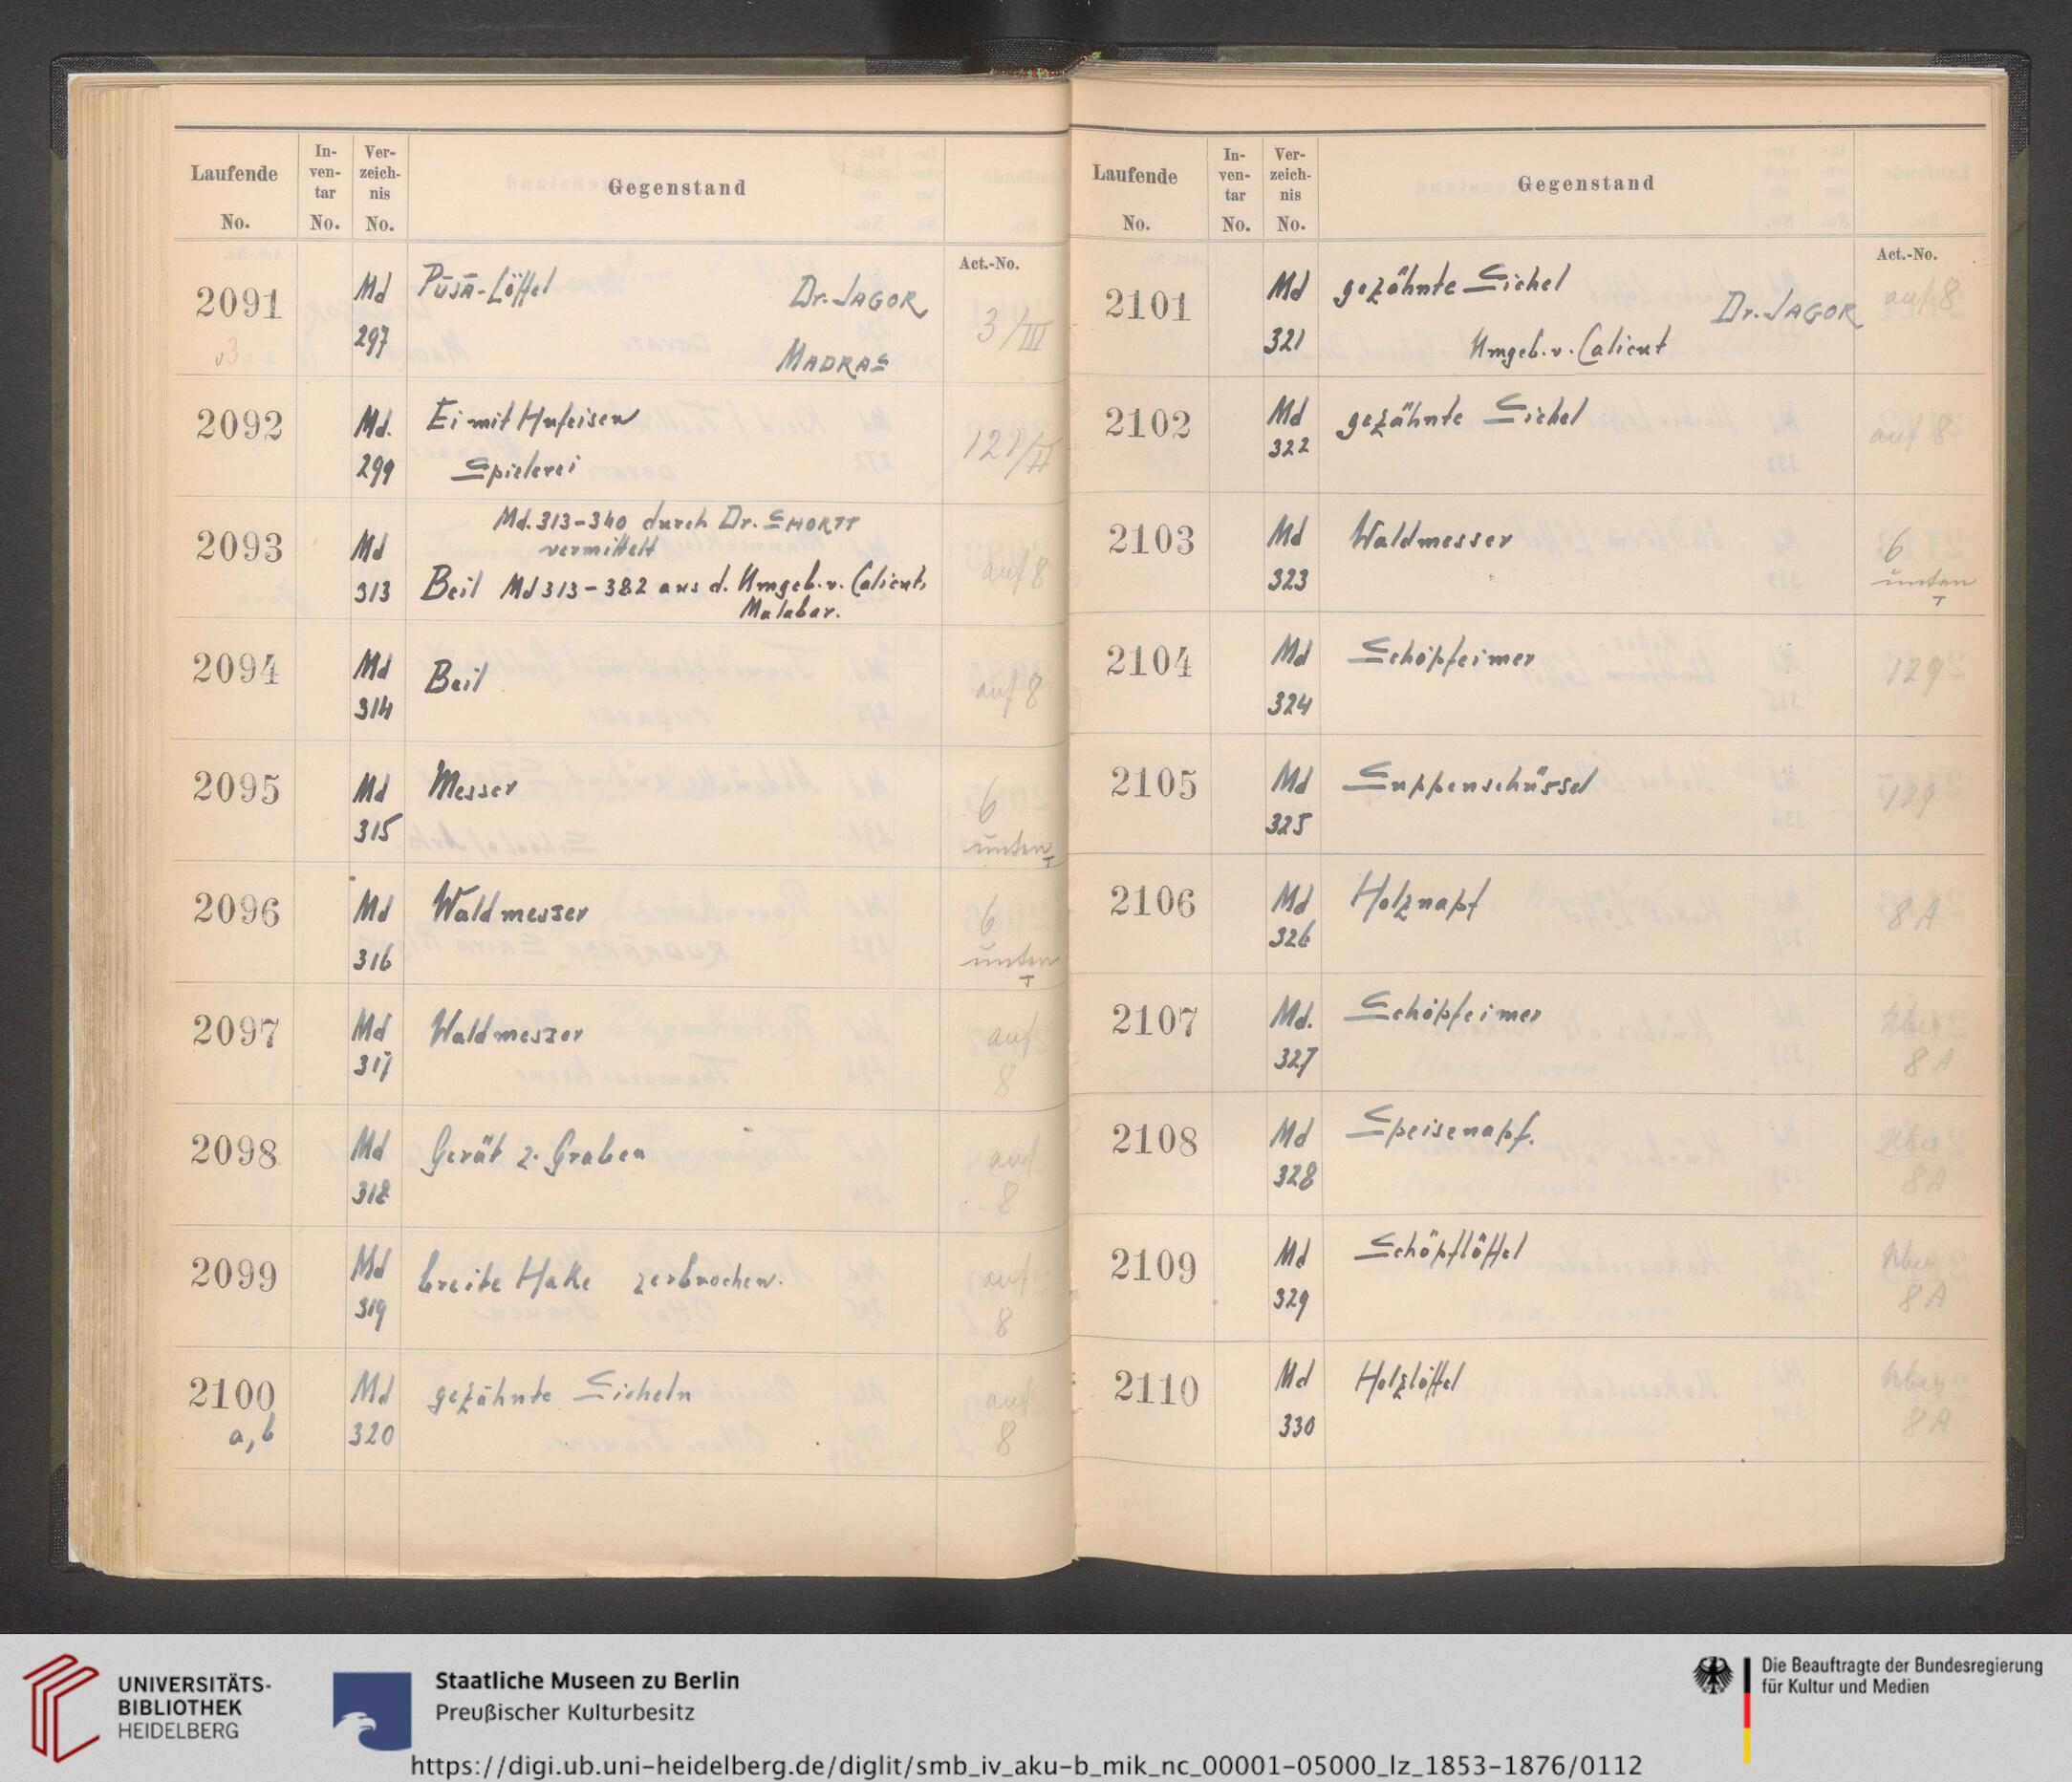 Laufende
No.
In-
ven-
tar
No.
Ver-
zeich-
nis
No.
Gegenstand
Act.-No.
2091
Md
297
Pūjā-Löffel
Dr. JAGOR
MADRAS
3/III
2092
Md.
299
Ei mit Hufeisen
Spielerei
2093
Md
313
Md. 313-340 durch Dr. SHORTT
vermittelt
Beil Md 313-382 aus d. Umgeb. v. Calicut,
Malabar.
auf 8
2094
Md
314
Beil
auf 8
2095
Md
315
Messer
6
unten
T
2096
Md
316
Waldmesser
6
unten
T
2097
Md
317
Waldmesser
auf
8
2098
Md
318
Gerät z. Graben
auf
8
2099
Md
319
breite Hake zerbrochen.
auf
8
2100
a, b
Md
320
gezähnte Sicheln
auf
8
Laufende
No.
In-
ven-
tar
No.
Ver-
zeich-
nis
No.
Gegenstand
Act.-No.
2101
Md
321
gezähnte Sichel
Dr. JAGOR
Umgeb. v. Calicut
auf 8
2102
Md
322
gezähnte Sichel
auf 8
2103
Md
323
Waldmesser
6
unten
T
2104
Md
324
Schöpfeimer
129
2105
Md
325
Suppenschüssel
129
2106
Md
326
Holznapf
8A
2107
Md.
327
Schöpfeimer
über
8A
2108
Md
328
Speisenapf.
über
8A
2109
Md
329
Schöpflöffel
über
8A
2110
Md
330
Holzlöffel
über
8A
UNIVERSITÄTS-
BIBLIOTHEK
HEIDELBERG
Staatliche Museen zu Berlin
Preußischer Kulturbesitz
Die Beauftragte der Bundesregierung
für Kultur und Medien
https://digi.ub.uni-heidelberg.de/diglit/smb_iv_aku-b_mik_nc_00001-05000_lz_1853-1876/0112